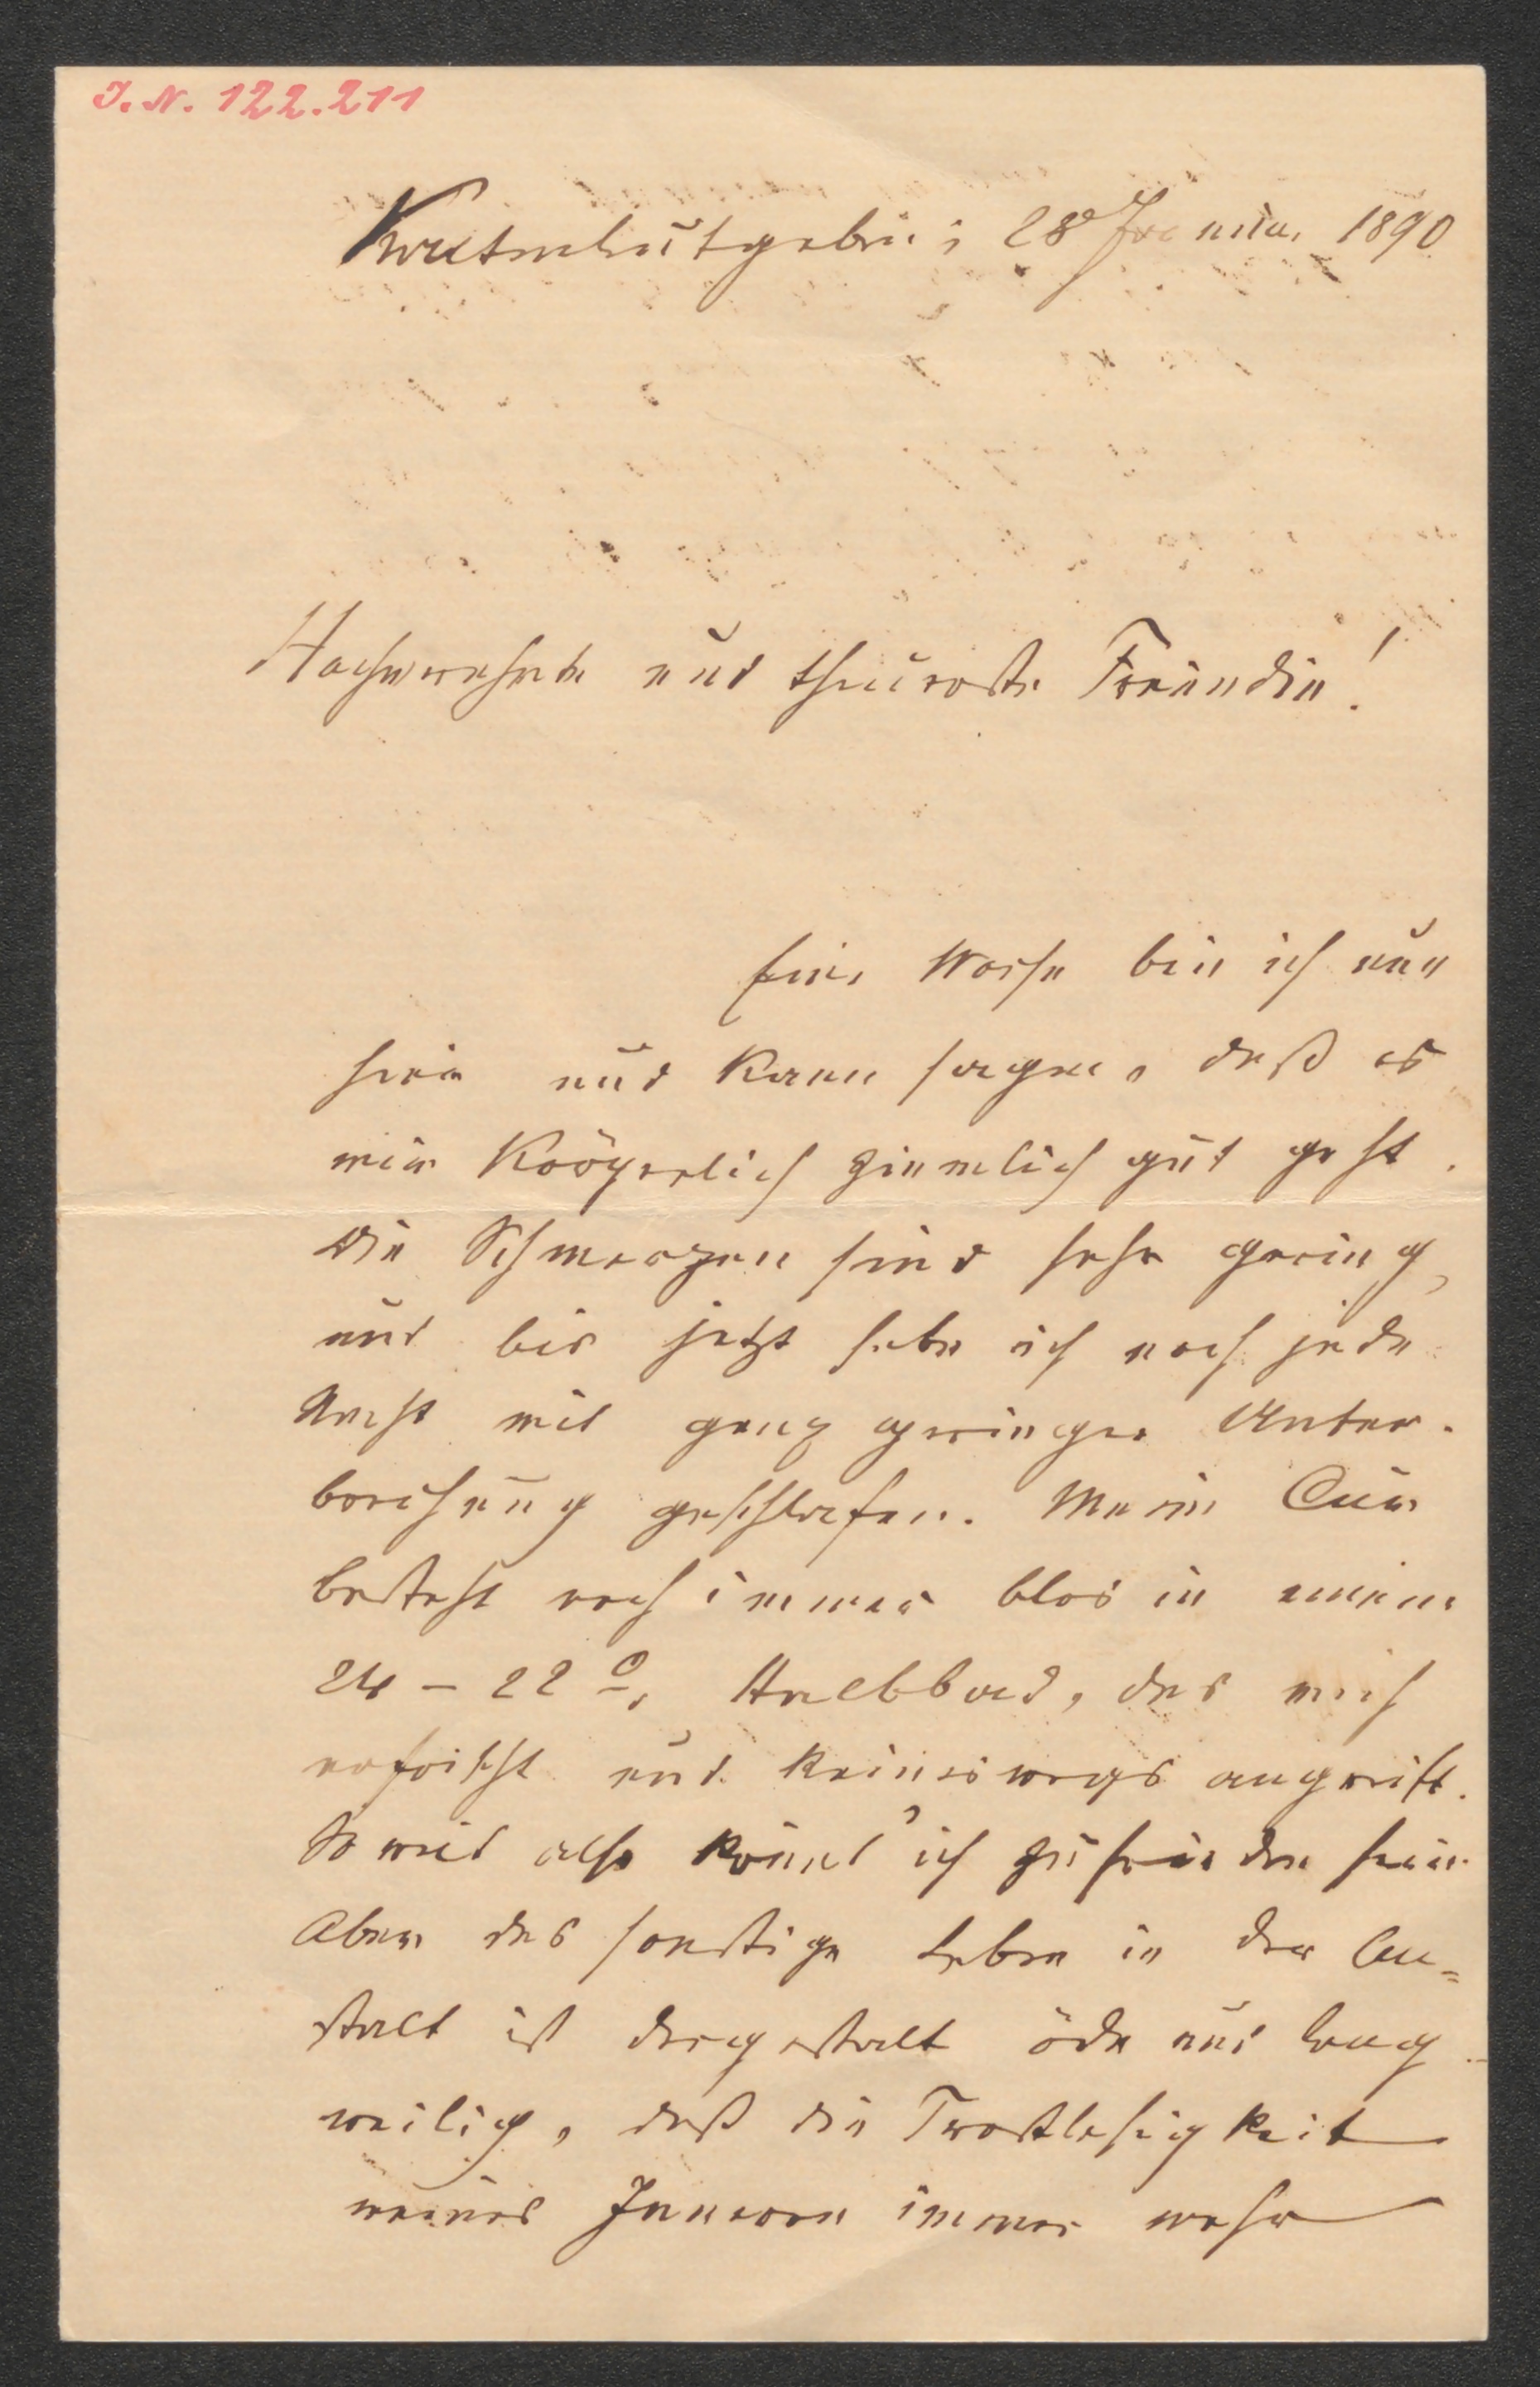 J. N. 122.211
Kaltenleutgeben, 28 Januar 1890
Hochverehrte und theuerste Freundin!
Eine Woche bin ich nun
hier und kann sagen, daß es
mir körperlich ziemlich gut geht.
Die Schmerzen sind sehr gering,
und bis jetzt habe ich noch jede
Nacht mit ganz geringer Unter-
brechung geschlafen. Meine Cur
besteht noch immer blos in einem
24 – 22 0, Halbbad, das mich
erfrischt und keineswegs angreift.
So weit also könnt' ich zufrieden sein.
Aber das sonstige Leben in der An=
stalt ist dergestalt öde und lang-
weilig, daß die Trostlosigkeit
meines Inneren immer mehr